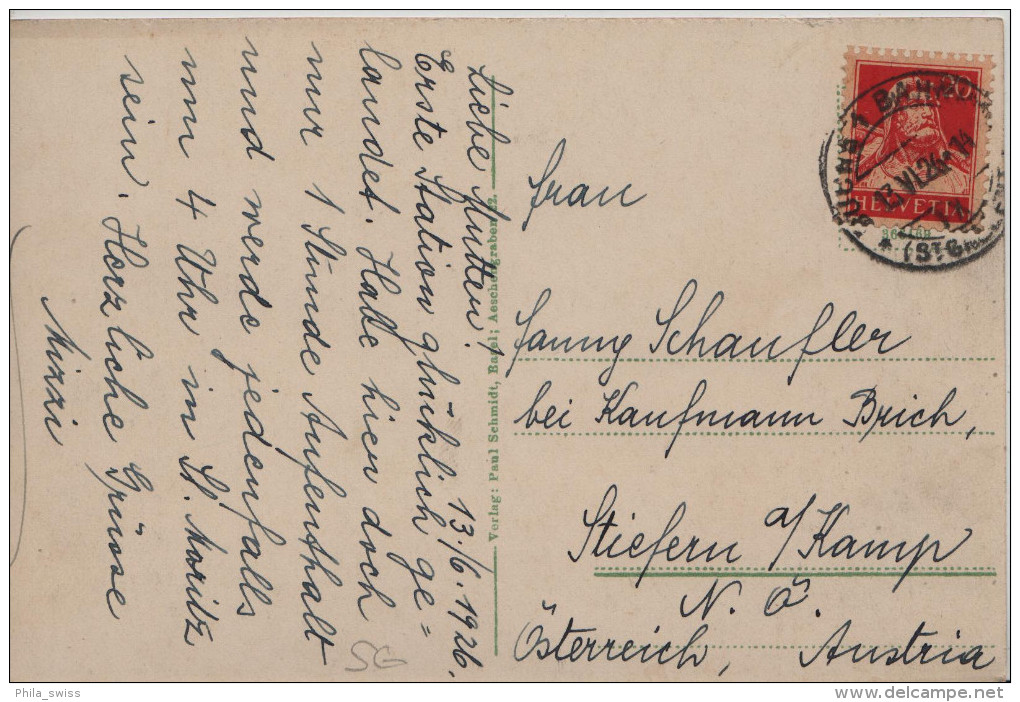 13./6. 1926.
Liebe Mutter!
Erste Station glücklich ge=
landet. Habe hier doch
nur 1 Stunde Aufenthalt
und werde jedenfalls
um 4 Uhr in St. Moritz
sein. Herzliche Grüsse
Mizzi
SG
Verlag: Paul Schmidt, Basel; Aeschengraben
20
HELVETIA
BUCHS 1 BAHN
13.VI.26 14
Frau
Fanny Schaufler
bei Kaufmann Brich,
Stiefern a/Kamp
N. Ö.
Österreich, Austria
Phila_swiss
www.delcampe.net